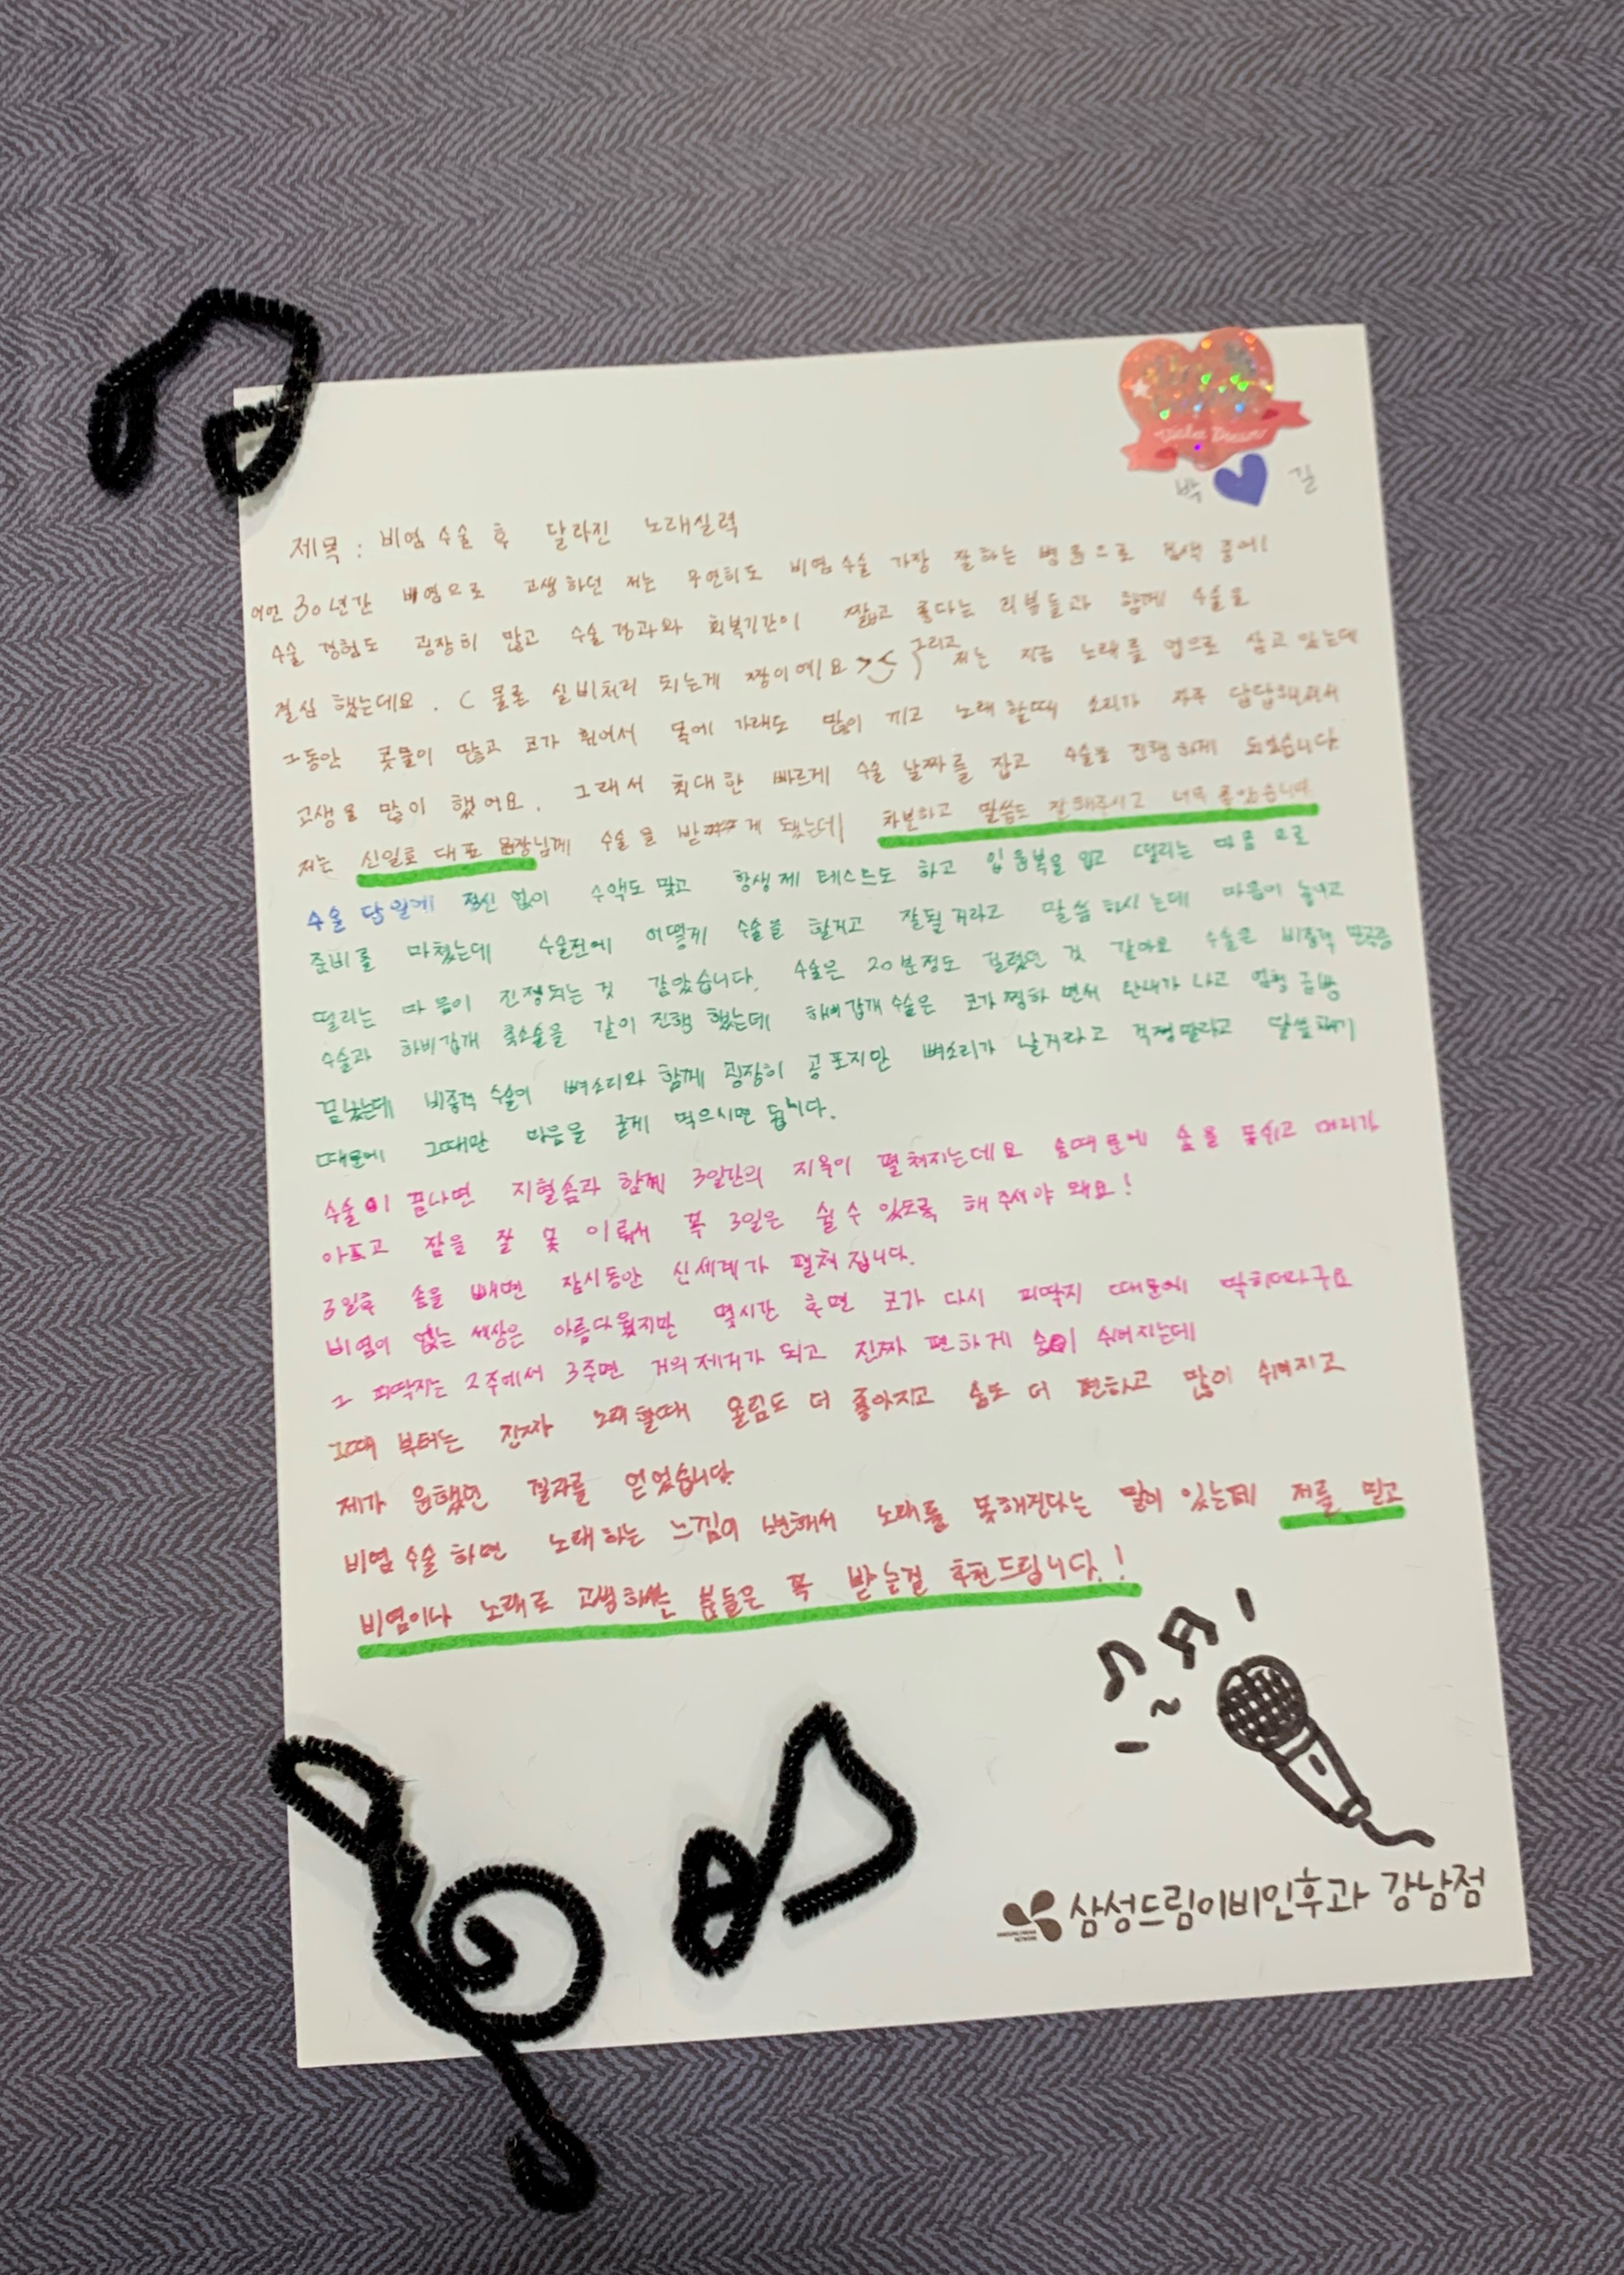 박 길
제목 : 비염 수술 후 달라진 노래실력
어언 30년간 비염으로 고생하던 저는 우연히도 비염수술 가장 잘하는 병원으로 검색 중에
수술 경험도 굉장히 많고 수술경과와 회복기간이 짧고 좋다는 리뷰들과 함께 수술을
결심 했는데요. ( 물론 실비처리 되는게 짱이에요 >< ) 그리고 저는 지금 노래를 업으로 삼고 있는데
그동안 콧물이 많고 코가 휘어서 목에 가래도 많이 끼고 노래할때 소리가 자주 답답해져서
고생을 많이 했어요. 그래서 최대한 빠르게 수술 날짜를 잡고 수술을 진행하게 되었습니다.
저는 신일호 대표 원장님께 수술을 받게 됐는데 차분하고 말씀도 잘해주시고 너무 좋았습니다
수술 당일에 정신 없이 수액도 맞고 항생제 테스트도 하고 입원복을 입고 떨리는 마음으로
준비를 마쳤는데 수술전에 어떻게 수술을 할거고 잘될거라고 말씀하시는데 마음이 놓이고
떨리는 마음이 진정되는 것 같았습니다. 수술은 20분정도 걸렸던 것 같아요 수술은 비중격 만곡증
수술과 하비갑개 축소술을 같이 진행 했는데 하비갑개 수술은 코가 찡하면서 탄내가 나고 엄청 금방
끝났는데 비중격 수술이 뼈소리와 함께 굉장히 공포지만 뼈소리가 날거라고 걱정말라고 말씀해주기
때문에 그때만 마음을 굳게 먹으시면 됩니다.
수술이 끝나면 지혈솜과 함께 3일간의 지옥이 펼쳐지는데요 솜때문에 숨을 못쉬고 머리가
아프고 잠을 잘 못 이뤄서 푹 3일은 쉴 수 있도록 해 주셔야 돼요!
3일후 솜을 빼면 잠시동안 신세계가 펼쳐 집니다.
비염이 없는 세상은 아름다웠지만 몇시간 후면 코가 다시 피딱지 때문에 막히더라구요
그 피딱지는 2주에서 3주면 거의 제거가 되고 진짜 편하게 숨이 쉬어지는데
그때 부터는 진짜 노래할때 울림도 더 좋아지고 숨도 더 편하고 많이 쉬어지고
제가 원했던 결과를 얻었습니다.
비염 수술 하면 노래하는 느낌이 변해서 노래를 못해진다는 말이 있는데 저를 믿고
비염이나 노래로 고생하는 분들은 꼭 받는걸 추천드립니다.!
삼성드림이비인후과 강남점